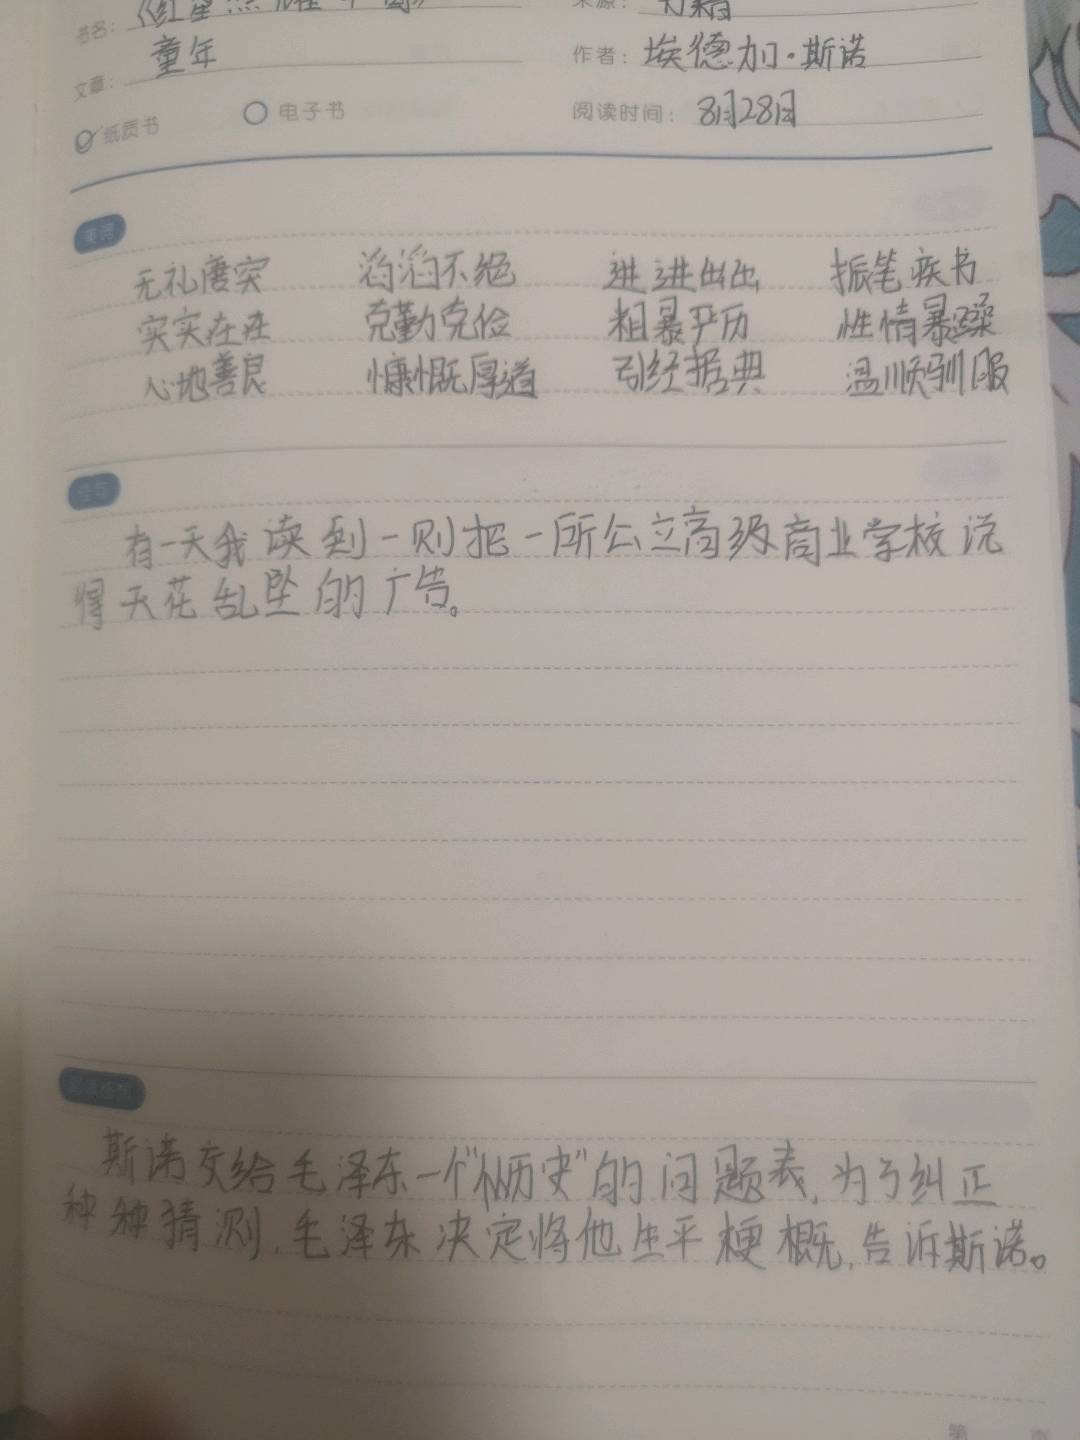 书名：《红星照耀中国》 来源：书籍
文章：童年 作者：埃德加·斯诺
纸质书 电子书 阅读时间：8月28日
美词
无礼唐突 滔滔不绝 进进出出 振笔疾书
实实在在 克勤克俭 粗暴严厉 性情暴躁
心地善良 慷慨厚道 引经据典 温顺驯服
佳句
有一天我读到一则把一所公立高级商业学校说
得天花乱坠的广告。
斯诺交给毛泽东一个"个人历史"的问题表,为了纠正
种种猜测,毛泽东决定将他生平梗概,告诉斯诺。
第 页